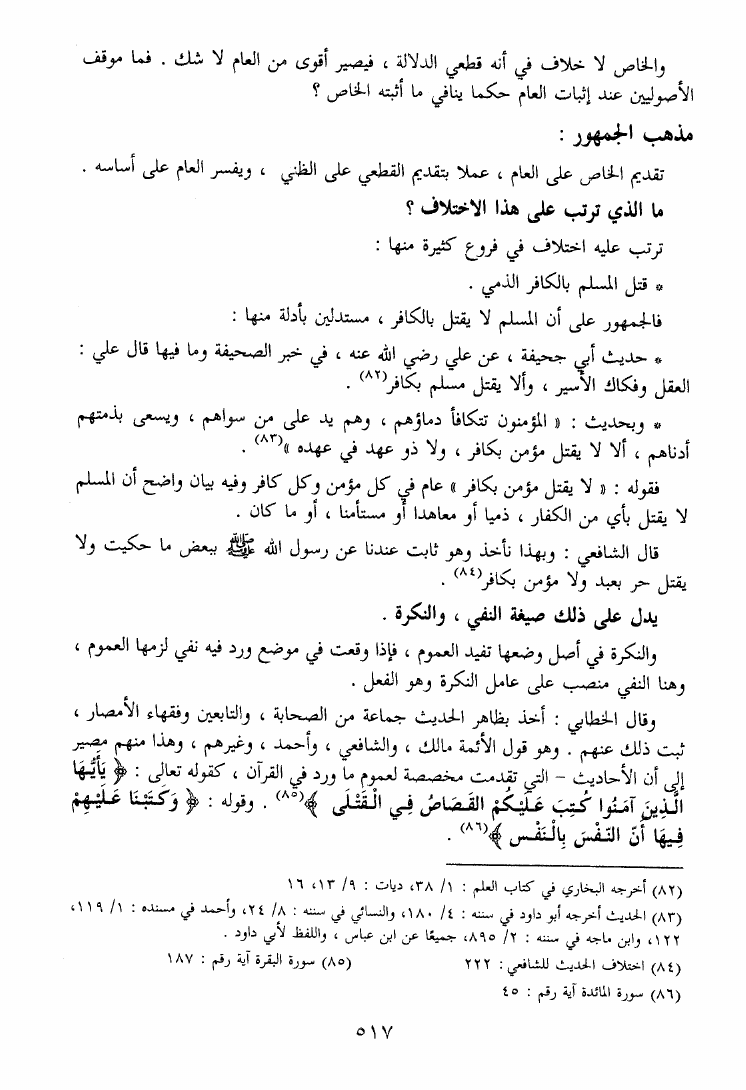 والخاص لا خلاف في أنه قطعي الدلالة ، فيصير أقوى من العام لا شك . فما موقف
الأصوليين عند إثبات العام حكما ينافي ما أثبته الخاص ؟
مذهب الجمهور :
تقديم الخاص على العام ، عملا بتقديم القطعي على الظني ، ويفسر العام على أساسه .
ما الذي ترتب على هذا الاختلاف ؟
ترتب عليه اختلاف في فروع كثيرة منها :
* قتل المسلم بالكافر الذمي .
فالجمهور على أن المسلم لا يقتل بالكافر ، مستدلين بأدلة منها :
* حديث أبي جحيفة ، عن علي رضي الله عنه ، في خبر الصحيفة وما فيها قال علي :
العقل وفكاك الأسير ، وألا يقتل مسلم بكافر(٨٢) .
* وبحديث : « المؤمنون تتكافأ دماؤهم ، وهم يد على من سواهم ، ويسعى بذمتهم
أدناهم ، ألا لا يقتل مؤمن بكافر ، ولا ذو عهد في عهده »(٨٣) .
فقوله : « لا يقتل مؤمن بكافر » عام في كل مؤمن وكل كافر وفيه بيان واضح أن المسلم
لا يقتل بأي من الكفار ، ذميا أو معاهدا أو مستأمنا ، أو ما كان .
قال الشافعي : وبهذا نأخذ وهو ثابت عندنا عن رسول الله ﷺ ببعض ما حكيت ولا
يقتل حر بعبد ولا مؤمن بكافر(٨٤) .
يدل على ذلك صيغة النفي ، والنكرة .
والنكرة في أصل وضعها تفيد العموم ، فإذا وقعت في موضع ورد فيه نفي لزمها العموم ،
وهنا النفي منصب على عامل النكرة وهو الفعل .
وقال الخطابي : أخذ بظاهر الحديث جماعة من الصحابة ، والتابعين وفقهاء الأمصار ،
ثبت ذلك عنهم . وهو قول الأئمة مالك ، والشافعي ، وأحمد ، وغيرهم ، وهذا منهم مصير
إلى أن الأحاديث – التي تقدمت مخصصة لعموم ما ورد في القرآن ، كقوله تعالى : ﴿ يَأَيُّهَا
الَّذِينَ آمَنُوا كُتِبَ عَلَيْكُمُ القَصَاصُ فِي الْقَتْلَى ﴾(٨٥) . وقوله : ﴿ وَكَتَبْنَا عَلَيْهِمْ
فِيهَا أَنَّ النَّفْسَ بِالنَّفْس ﴾(٨٦) .
(٨٢) أخرجه البخاري في كتاب العلم : ١/ ٣٨، ديات : ٩/ ١٣، ١٦
(٨٣) الحديث أخرجه أبو داود في سننه : ٤/ ١٨٠، والنسائي في سننه : ٨/ ٢٤، وأحمد في مسنده : ١/ ١١٩،
١٢٢، وابن ماجه في سننه : ٢/ ٨٩٥، جميعًا عن ابن عباس ، واللفظ لأبي داود .
(٨٤) اختلاف الحديث للشافعي : ٢٢٢ (٨٥) سورة البقرة آية رقم : ١٨٧
(٨٦) سورة المائدة آية رقم : ٤٥
٥١٧